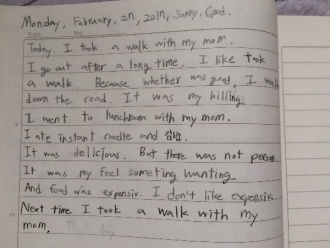 Monday, February, 27, 2017, Sunny. Good.
Date. No.
Today. I took a walk with my mom.
I go out after a long time. I like took
a walk. Because whether was good, I walk
down the road. It was my hilling.
I went to lunchroom with my mom.
I ate instant noodle and 김밥.
It was delicious. But there was not person.
It was my feel someting wanting.
And food was expensiv. I don't like expensiv.
Next time I took a walk with my
mom.